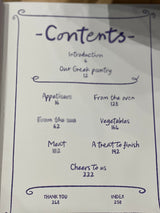 -Contents-
Introduction
6
Our Greek pantry
12
Appetisers From the oven
16 128
From the sea Vegetables
62 166
Meat A treat to finish
102 192
Cheers to us
222
THANK YOU INDEX
248 250